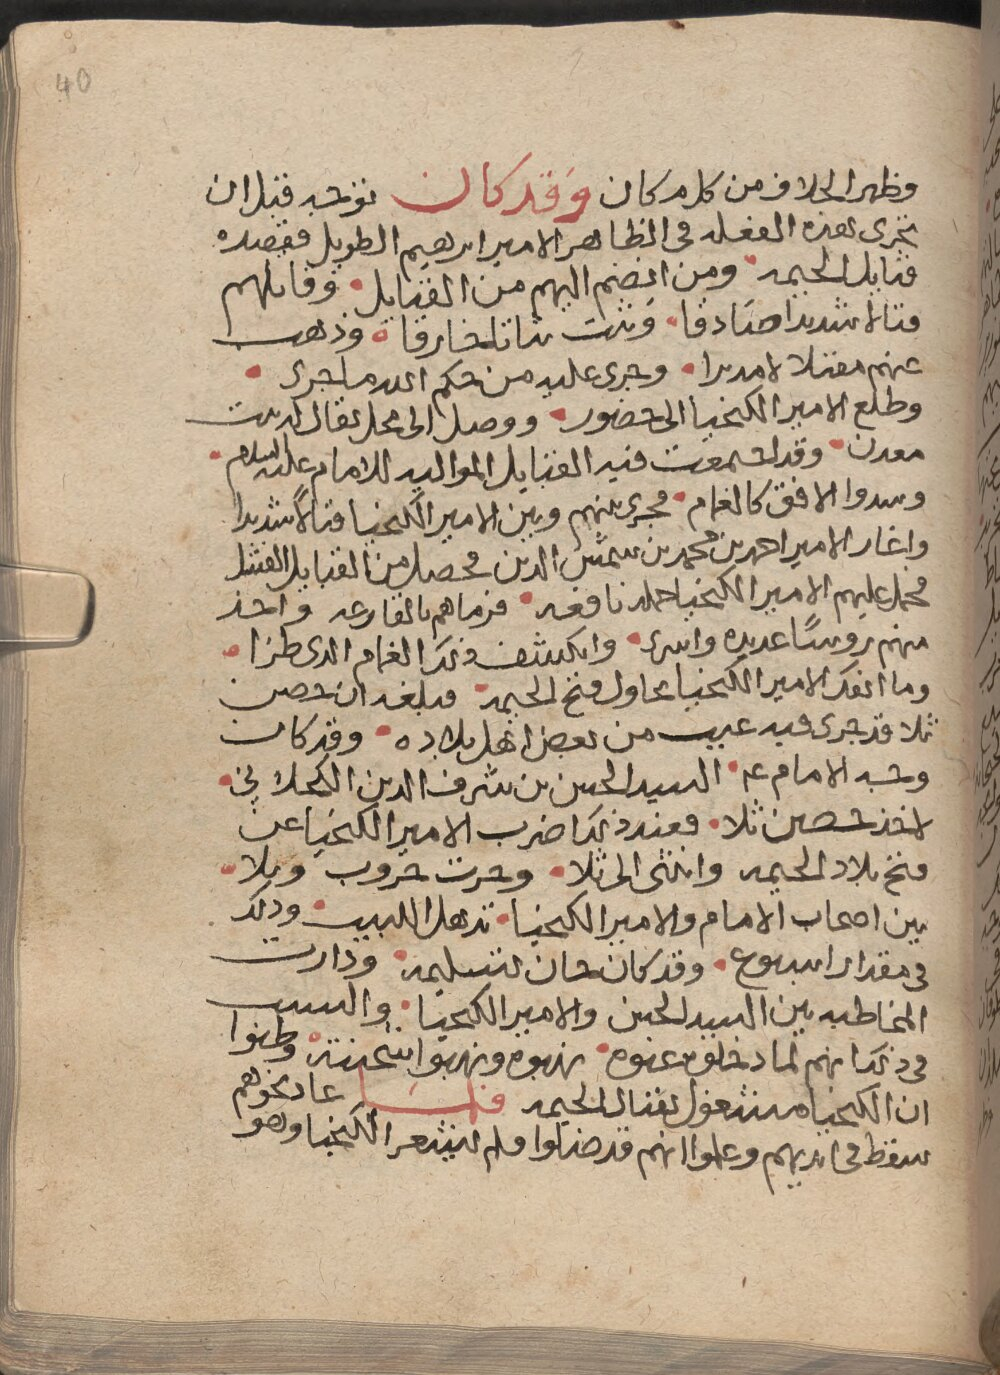 40
وظهر الخلاف من كلام كان وقد كان توجه قبل ان
تجرى هذه الفعله في الظاهر الامير ابرهيم الطويل فقصده
قبايل الحيمه ومن انضم اليهم من القبايل وقاتلهم
قتالا شديدا صادقا وثبت ثباتا خارقا وذهب
عنهم مقبلا لا مدبرا وجرى عليه من حكم الله ما جرى
وطلع الامير الكيخيا الى حضور ووصل الى محل يقال له بيت
معدن وقد اجتمعت فيه القبايل المواليه للامام عليه السلام
وسدوا الافق كالغمام فجرى بينهم وبين الامير الكيخيا قتالا شديدا
واغار الامير احمد بن محمد بن شمس الدين فحصل من القبايل الفشل
فحمل عليهم الامير الكيخيا حمله نافعه فرماهم بالقارعه واخذ
منهم روسًا عديده واسرى وانكشف ذلك الغمام الذى طرا
وما انفك الامير الكيخيا يحاول فتح الحيمه فبلغه ان حصن
ثلا قد جرى فيه عيب من بعض اهل بلاده وقد كان
وجه الامام ع م السيد الحسن بن شرف الدين الكحلاني
لاخذ حصن ثلا فعند ذلك اضرب الامير الكيخيا عن
فتح بلاد الحيمه وانثنى الى ثلا وجرت حروب وبلا
بين اصحاب الامام والامير الكيخيا تذهل اللبيب وذلك
في مقدار اسبوع وقد كان حان تسليمه ودارت
المخاطبه بين السيد الحسن والامير الكيخيا والسبب
في ذلك انهم لما دخلوه عنوه نهبوه ونهبوا شحنته وظنوا
ان الكيخيا مشتغول بقتال الحيمه فلما عاد نحوهم
سقط في ايديهم وعلموا انهم قد ضلوا ولم يشعر الكيخيا وهو